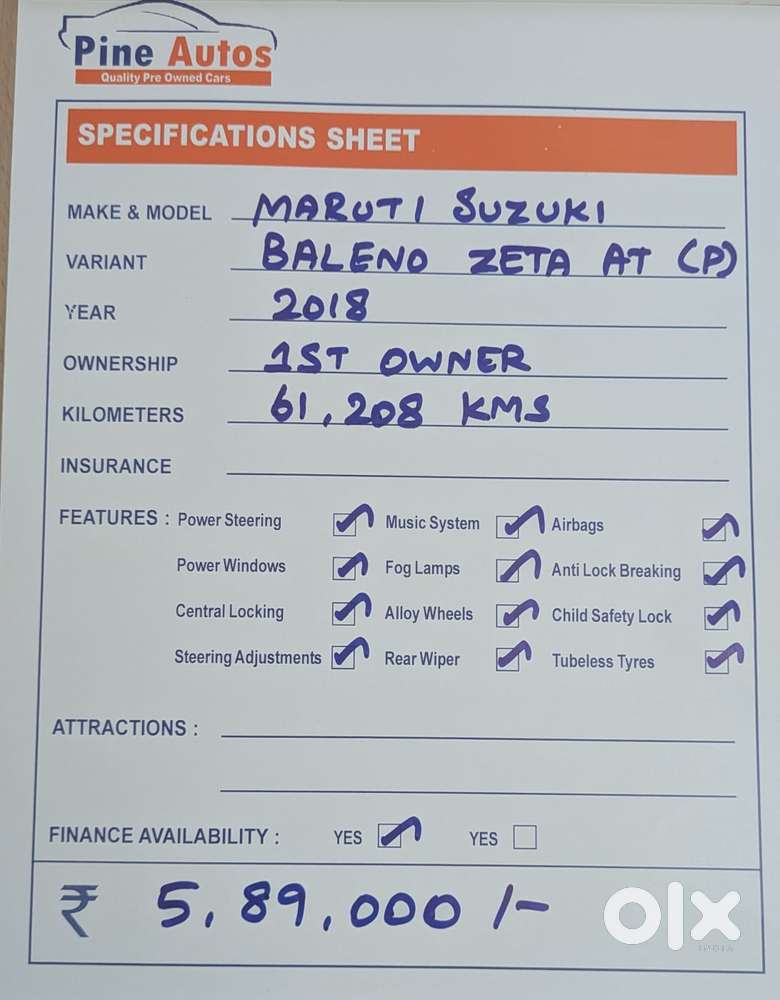 Pine Autos
Quality Pre Owned Cars
SPECIFICATIONS SHEET
MAKE & MODEL MARUTI SUZUKI
VARIANT BALENO ZETA AT (P)
YEAR 2018
OWNERSHIP 1ST OWNER
KILOMETERS 61,208 KMS
INSURANCE
FEATURES : Power Steering Music System Airbags
Power Windows Fog Lamps Anti Lock Breaking
Central Locking Alloy Wheels Child Safety Lock
Steering Adjustments Rear Wiper Tubeless Tyres
ATTRACTIONS :
FINANCE AVAILABILITY : YES YES
₹ 5,89,000/-
olx